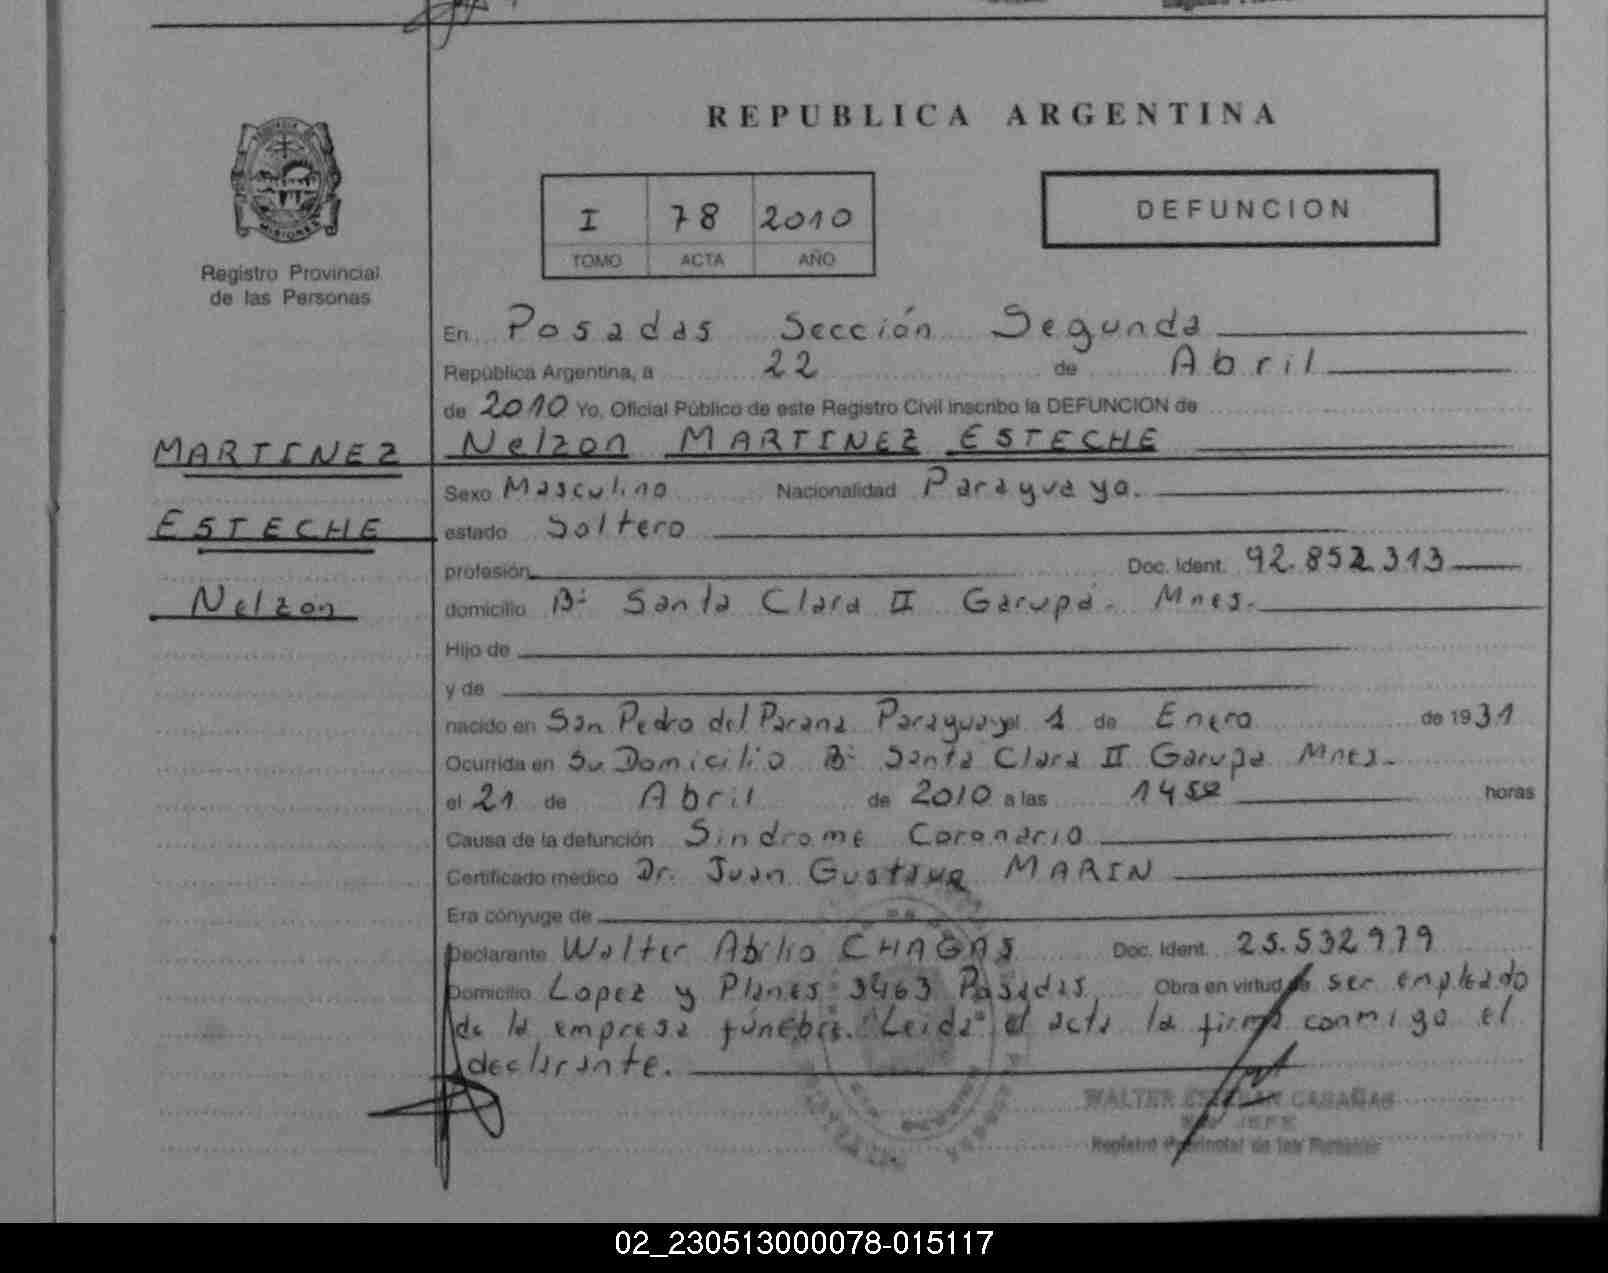 REPUBLICA ARGENTINA
MISIONES
Registro Provincial
de las Personas
I 78 2010
TOMO ACTA AÑO
DEFUNCION
En Posadas Sección Segunda
República Argentina, a 22 de Abril
de 2010 Yo, Oficial Público de este Registro Civil inscribo la DEFUNCION de
MARTINEZ
Nelzon MARTINEZ ESTECHE
Sexo Masculino Nacionalidad Paraguaya.
ESTECHE
estado Soltero
profesión Doc. Ident. 92.852.313
Nelzon
domicilio Bº Santa Clara II Garupá. Mnes.
Hijo de
y de
nacido en San Pedro del Parana Paraguay el 1 de Enero de 1931
Ocurrida en Su Domicilio Bº Santa Clara II Garupa Mnes.
el 21 de Abril de 2010 a las 14 horas
Causa de la defunción Sindrome Coronario
Certificado médico Dr. Juan Gustavo MARIN
Era cónyuge de
Declarante Walter Abilio CHAGAS Doc. Ident. 25.532979
Domicilio Lopez y Planes 3463 Posadas Obra en virtud de ser empleado
de la empresa fúnebre. "Leida" el acta la firma conmigo el
declarante.
WALTER ESTEBAN CABAÑAS
JEFE
Registro Provincial de las Personas
02_230513000078-015117